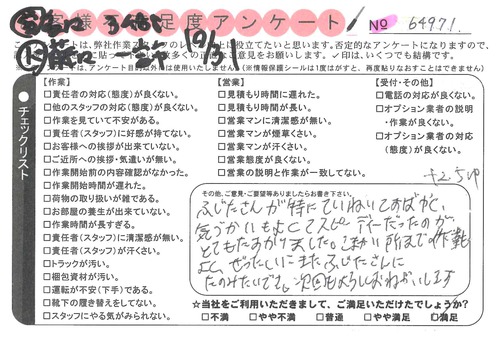 お客様 満足度アンケート
№ 64971.
10/31
このアンケートは、弊社作業スタッフの
否定的なアンケートになりますので、
✓印は、いくつでも結構です。
アンケート目的以外は使用いたしません。(※情報保護シールは1度がすと、再度貼りなおすことはできません)
チェックリスト
【作業】
□責任者の対応(態度)が良くない。
□他のスタッフの対応(態度)が良くない。
□作業を見ていて不安がある。
□責任者(スタッフ)に好感が持てない。
□お客様への挨拶が出来ていない。
□ご近所への挨拶・気遣いが無い。
□作業開始前の内容確認がなかった。
□作業開始時間が遅れた。
□荷物の取り扱いが雑である。
□お部屋の養生が出来ていない。
□作業時間が長すぎる。
□責任者(スタッフ)に清潔感が無い。
□責任者(スタッフ)が汗くさい。
□トラックが汚い。
□梱包資材が汚い。
□運転が不安(下手)である。
□靴下の履き替えをしてない。
□スタッフにやる気がみられない。
【営業】
□見積もり時間に遅れた。
□見積もり時間が長い。
□営業マンに清潔感が無い。
□営業マンが煙草くさい。
□営業マンが汗くさい。
□営業態度が良くない。
□営業の説明と作業が一致してない。
【受付・その他】
□電話の対応が良くない。
□オプション業者の説明
・作業が良くない。
□オプション業者の対応
(態度)が良くない。
その他、ご意見・ご要望等ありましたらお書き下さい。
ふじたさんが特にていねいですばやく、
気づかいもよくてスピーディーだったのが、
とてもたすかりました。こまかい所までの作業
ぜったいにまたふじたさんに
たのみたいです。次回もよろしくおねがいします
☆当社をご利用いただきまして、ご満足いただけたでしょうか?
□不満 □やや不満 □普通 □やや満足 □満足